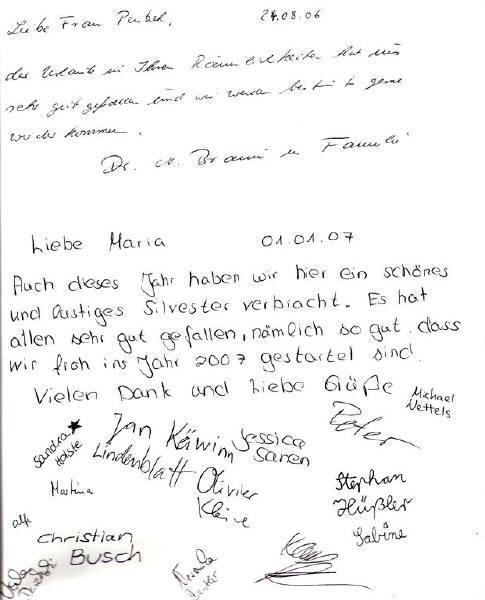 Liebe Frau 24.08.06
der Urlaub in Ihren Räumlichkeiten hat uns
sehr gut gefallen und wir werden bestimmt gerne
wieder kommen.
Dr. Familie
Liebe Maria 01.01.07
Auch dieses Jahr haben wir hier ein schönes
und lustiges Silvester verbracht. Es hat
allen sehr gut gefallen, nämlich so gut dass
wir froh ins Jahr 2007 gestartet sind.
Vielen Dank und liebe Grüße
Michael
Nettels
Peter
Sandra
Jan
Jessica
Lindenblatt
Martina
Olivier
Kleine
Stephan
Hüßler
Sabine
Christian
Busch